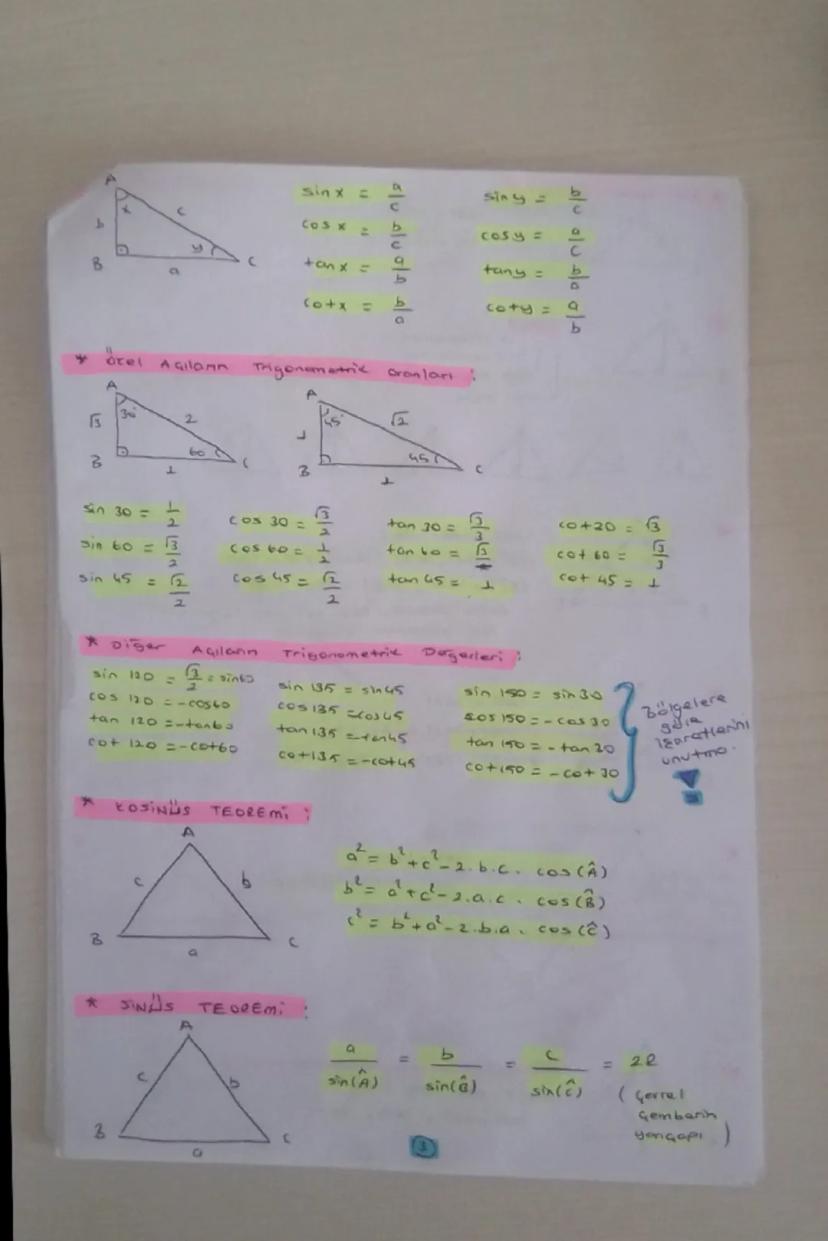 A
x
c
b
y
B
a
C
sin x = a/c
sin y = b/c
cos x = b/c
cos y = a/c
tan x = a/b
tan y = b/a
cot x = b/a
cot y = a/b
* Özel Açıların Trigonometrik Oranları :
A
30°
√3
2
60
B
1
C
A
45°
1
√2
45
B
1
C
sin 30 = 1/2
cos 30 = √3/2
tan 30 = √3/3
cot 30 = √3
sin 60 = √3/2
cos 60 = 1/2
tan 60 = √3
cot 60 = √3/3
sin 45 = √2/2
cos 45 = √2/2
tan 45 = 1
cot 45 = 1
* Diğer Açıların Trigonometrik Değerleri :
sin 120 = √3/2 = sin60
cos 120 = -cos60
tan 120 = -tan60
cot 120 = -cot60
sin 135 = sin45
cos 135 = -cos45
tan 135 = -tan45
cot 135 = -cot45
sin 150 = sin30
cos 150 = -cos 30
tan 150 = -tan 30
cot 150 = -cot 30
Bölgelere
göre
işaretlerini
unutma.
* KOSİNÜS TEOREMİ :
A
c
b
B
a
C
a² = b² + c² - 2.b.c. cos(Â)
b² = a² + c² - 2.a.c. cos(B̂)
c² = b² + a² - 2.b.a. cos(Ĉ)
* SİNÜS TEOREMİ :
A
c
b
B
a
C
a/sin(Â) = b/sin(B̂) = c/sin(Ĉ) = 2R
(Çevrel
Çemberin
yarıçapı)
3